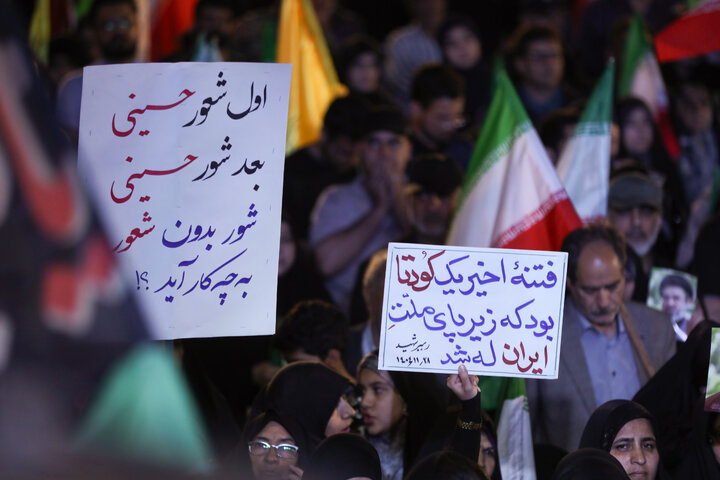 اول شعور حسینی
بعد شور حسینی
شور بدون شعور
به چه کار آید ؟!
فتنهٔ اخیر یک کودتا
بود که زیر پای ملّتِ
ایران له شد
رهبر شهید
۱۴۰۴/۱۱/۲۸